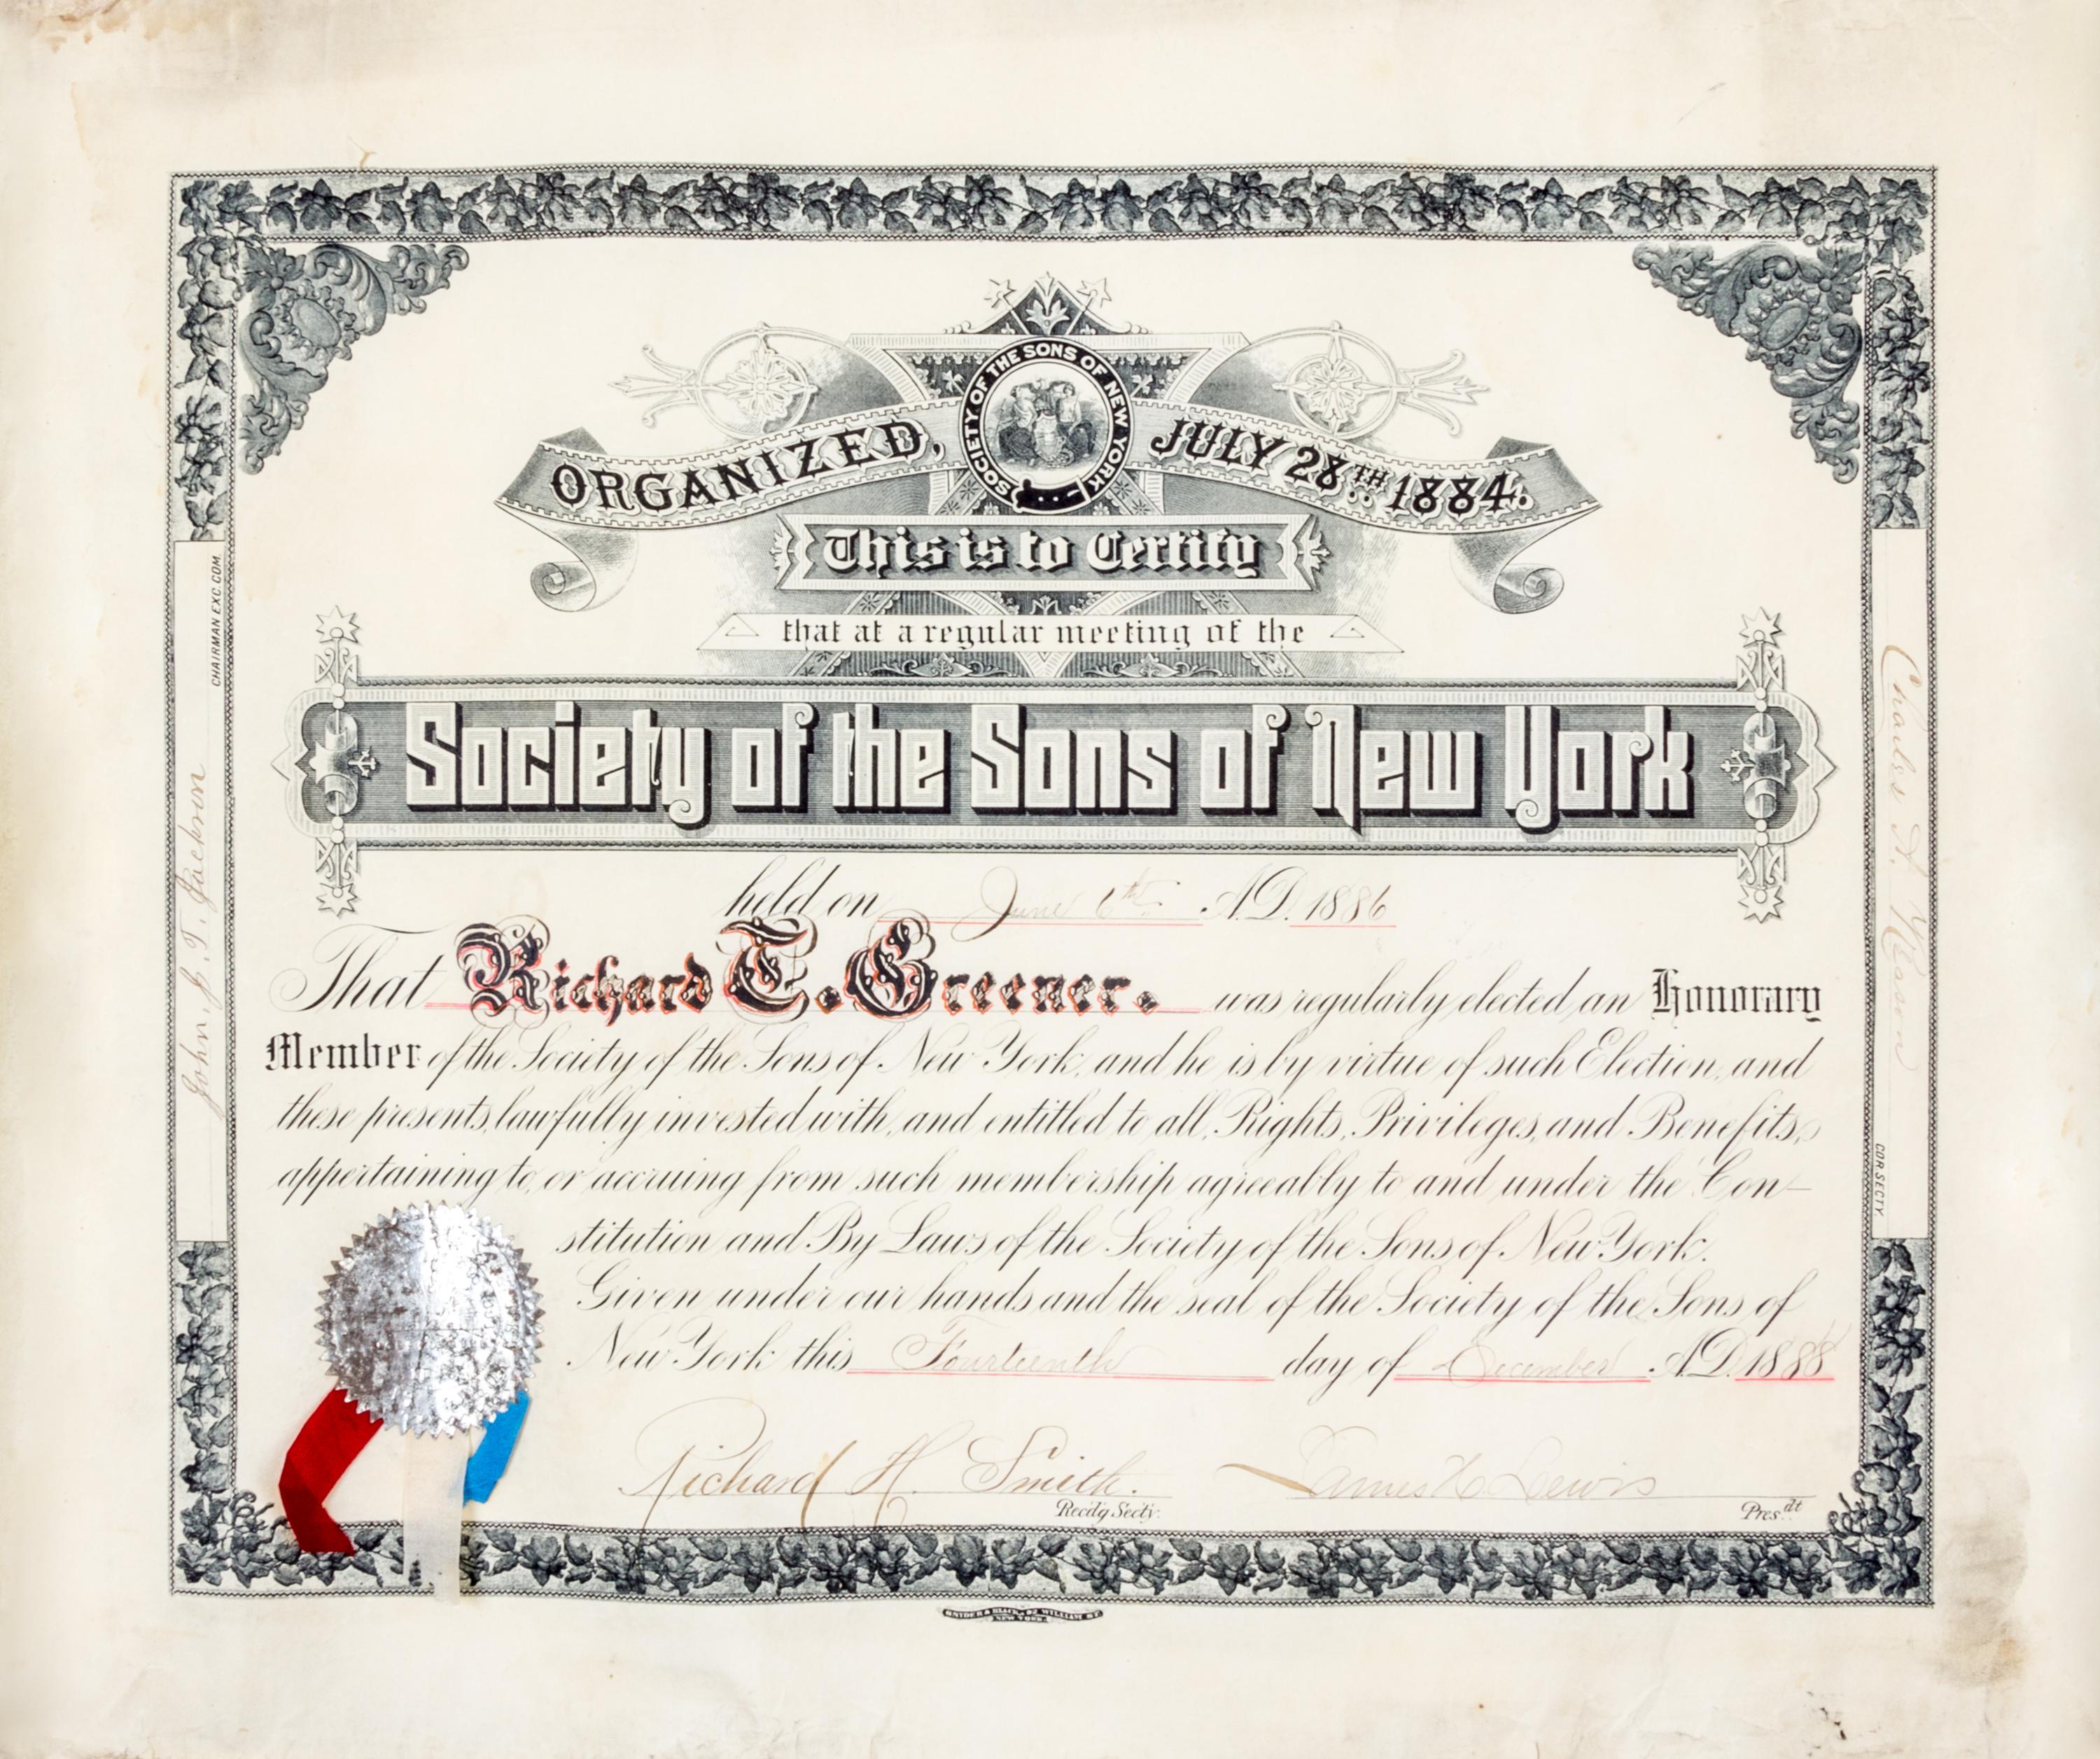 SOCIETY OF THE SONS OF NEW YORK
ORGANIZED, JULY 28TH 1884.
This is to Certify
that at a regular meeting of the
Society of the Sons of New York
held on June 6th A.D. 1886
That Richard T. Greener. was regularly elected an Honorary
Member of the Society of the Sons of New York, and he is by virtue of such Election, and
these presents, lawfully invested with, and entitled to all, Rights, Privileges, and Benefits,
appertaining to, or accruing from such membership agreeably to and under the Con-
stitution and By Laws of the Society of the Sons of New York.
Given under our hands and the seal of the Society of the Sons of
New York this Fourteenth day of December A.D. 1888
Richard H. Smith.
Recdg Secty.
James H Lewis
Pres.dt
John, S. T. Jackson
CHAIRMAN EXC. COM.
Charles A.
COR SECTY
SNYDER & BLACK, 92 WILLIAM ST.
NEW YORK.